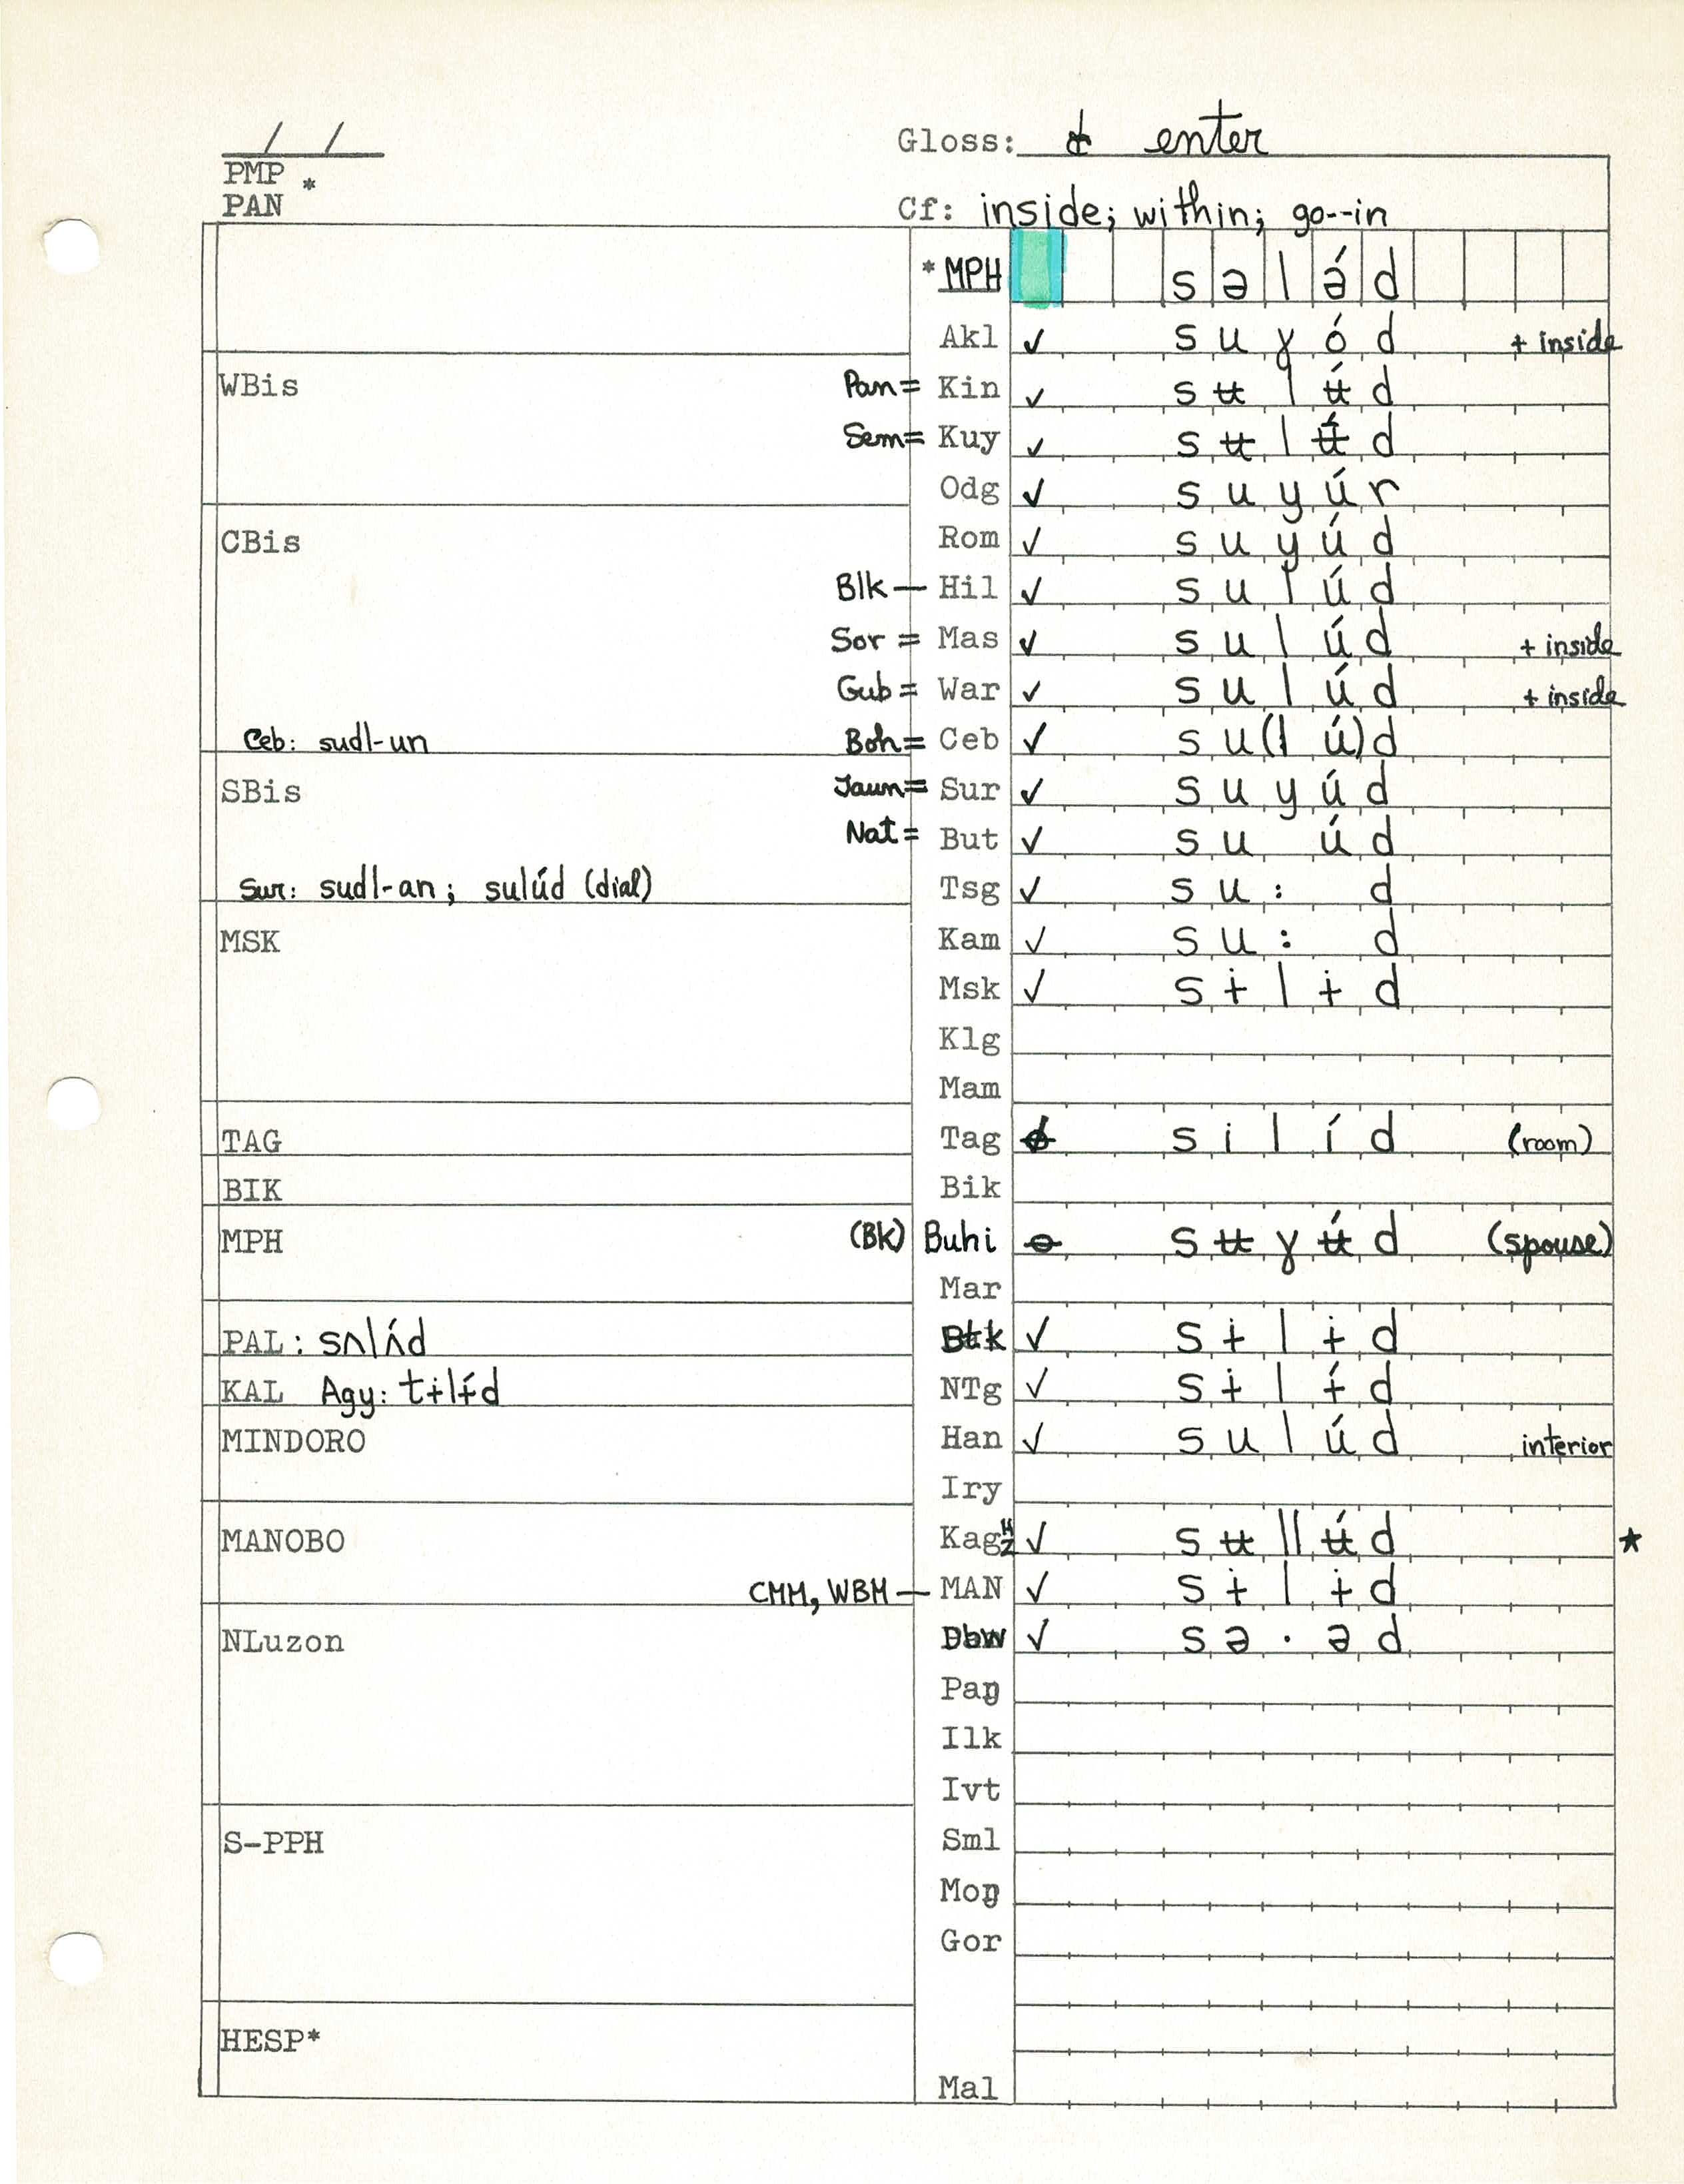 / /
PMP *
PAN
Gloss: ¢ enter
Cf: inside; within; go--in
* MPH s ə l ə́ d
Akl ✓ s u ɣ ó d + inside
WBis Pan= Kin ✓ s ʉ l ʉ́ d
Sem= Kuy ✓ s ʉ l ʉ́ d
Odg ✓ s u y ú r
CBis Rom ✓ s u y ú d
Blk— Hil ✓ s u l ú d
Sor = Mas ✓ s u l ú d + inside
Gub = War ✓ s u l ú d + inside
Ceb: sudl-un Boh= Ceb ✓ s u(l ú)d
SBis Jaun= Sur ✓ s u y ú d
Nat= But ✓ s u ú d
Sur: sudl-an; sulúd (dial) Tsg ✓ s u : d
MSK Kam ✓ s u : d
Msk ✓ s ɨ l ɨ d
Klg
Mam
TAG Tag s i l í d (room)
BIK Bik
MPH (Bk) Buhi ɵ s ʉ ɣ ʉ́ d (spouse)
Mar
PAL: sʌlʌ́d Btk ✓ s ɨ l ɨ d
KAL Agy: tɨlɨ́d NTg ✓ s ɨ l ɨ́ d
MINDORO Han ✓ s u l ú d interior
Iry
MANOBO Kag ✓ s ʉ ll ʉ́ d ★
CMM, WBM — MAN ✓ s ɨ l ɨ d
NLuzon Dbw ✓ s ə · ə d
Paŋ
Ilk
Ivt
S-PPH Sml
Moŋ
Gor
HESP*
Mal